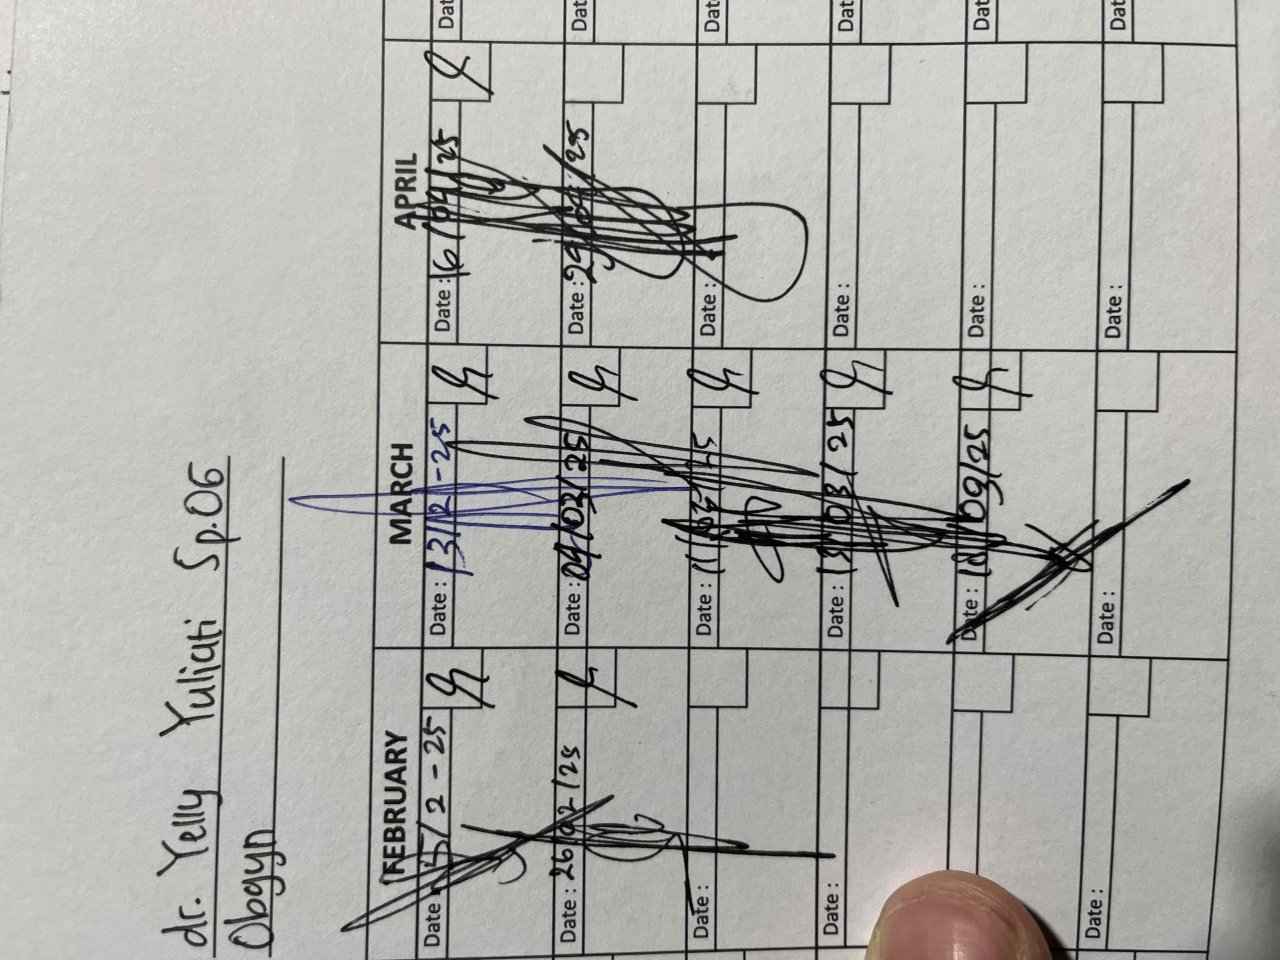 dr. Yelly Yuliati Sp.OG
Obgyn
FEBRUARY
MARCH
APRIL
Date : 5/2-25
Date : 13/2-25
Date : 16/04/25
Date
Date : 26/02/25
Date : 04/03/25
Date : 29/04/25
Dat
Date :
Date :
Date :
Dat
Date :
Date : /03/25
Date :
Dat
Date : /25
Date :
Dat
Date :
Date :
Date :
Dat